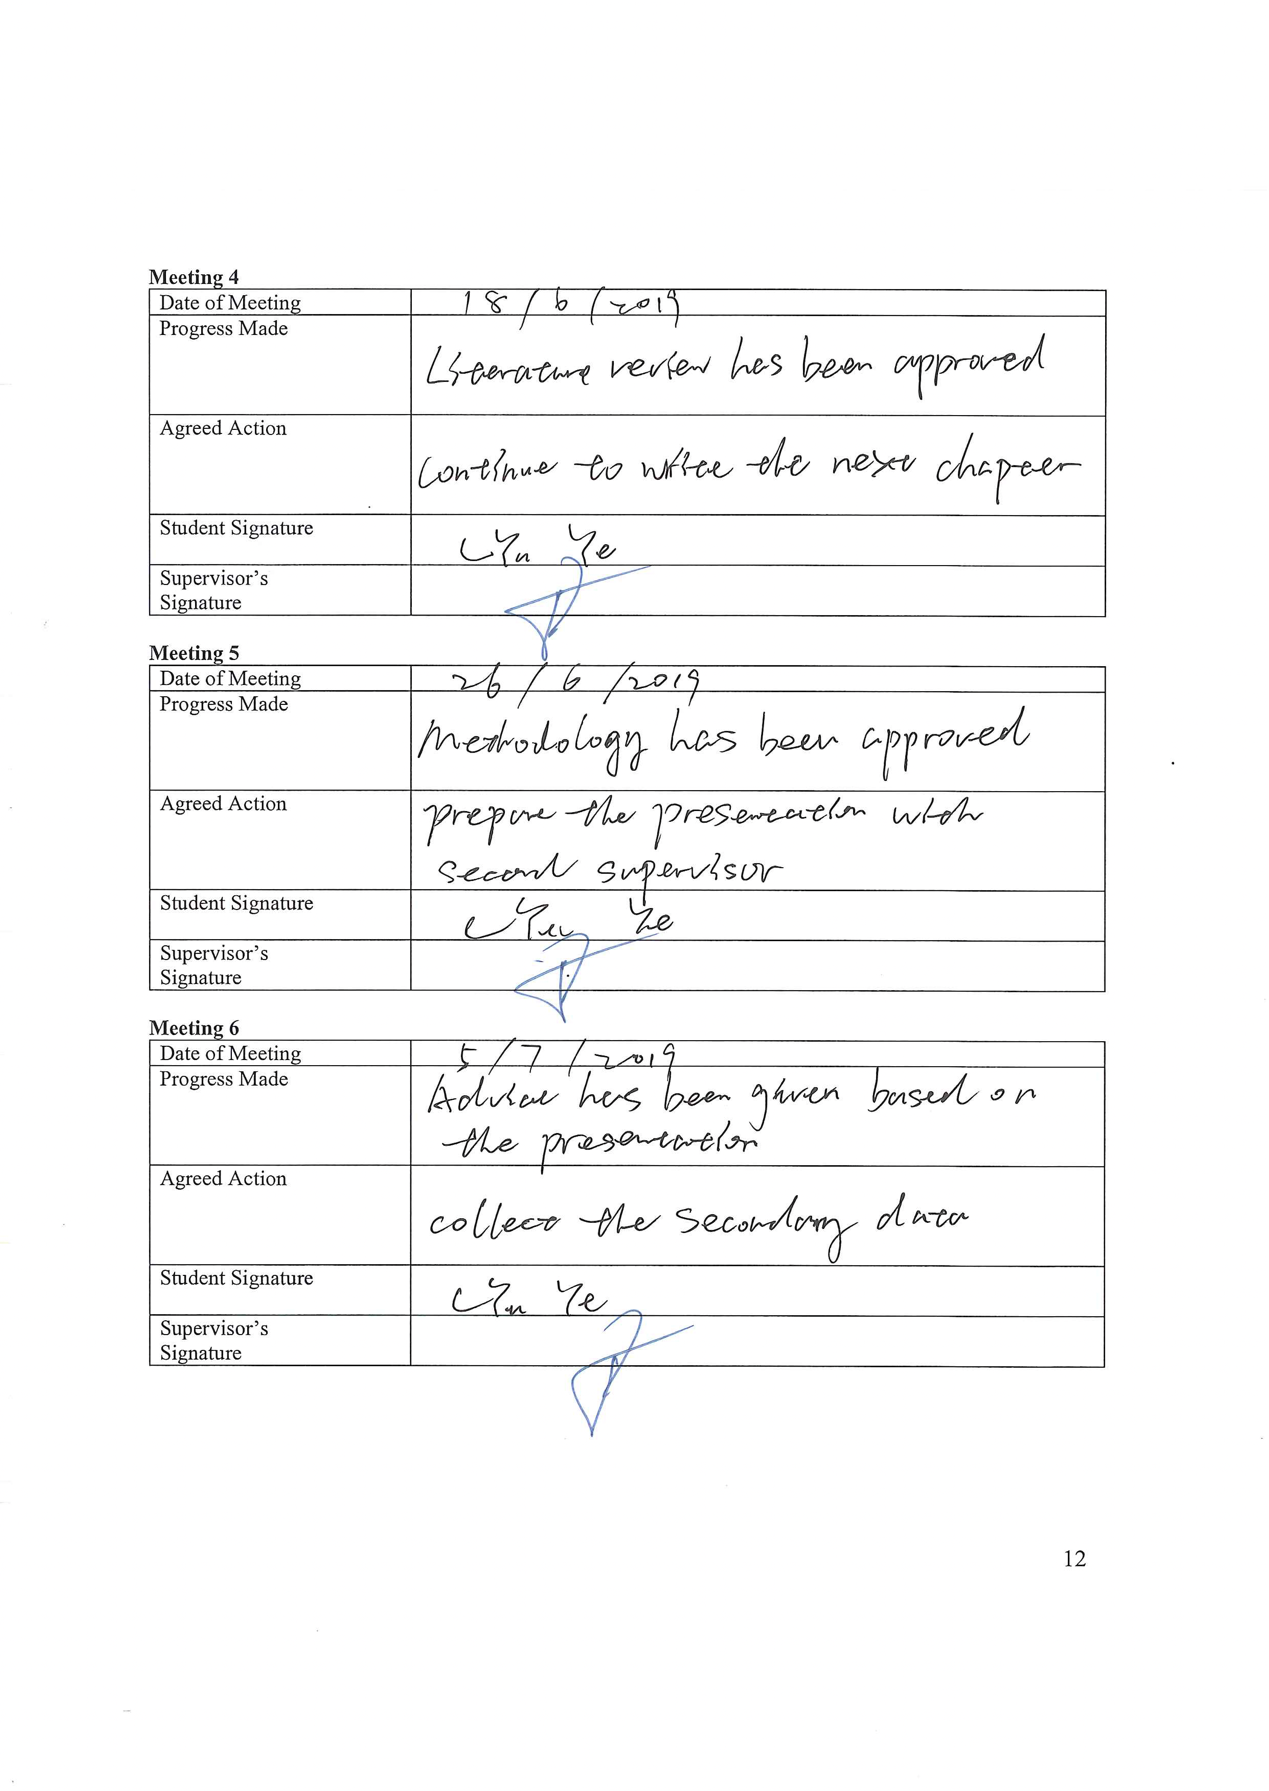 Meeting 4
Date of Meeting 18/6/2019
Progress Made
Literature review has been approved
Agreed Action
Continue to write the next chapter
Student Signature
Ye
Supervisor's
Signature
Meeting 5
Date of Meeting 26/6/2019
Progress Made
Methodology has been approved
Agreed Action prepare the presentation with
second supervisor
Student Signature
Ye
Supervisor's
Signature
Meeting 6
Date of Meeting 5/7/2019
Progress Made Advice has been given based on
the presentation
Agreed Action
collect the secondary data
Student Signature
Ye
Supervisor's
Signature
12